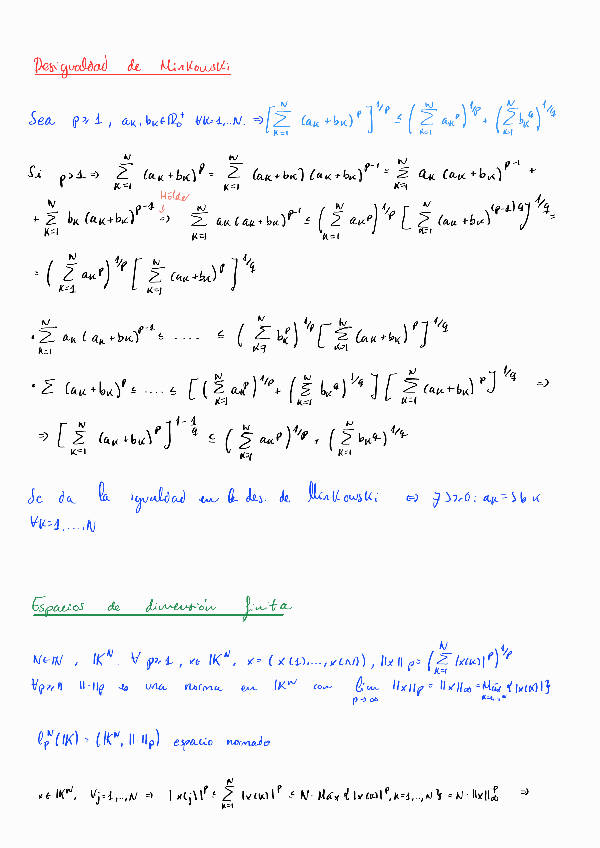 Desigualdad de Minkowski
Sea p≥1, aₖ,bₖ∈ℝ₀⁺ ∀k=1,..N. ⇒ [∑_{k=1}^N (aₖ+bₖ)^p]^{1/p} ≤ (∑_{k=1}^N aₖ^p)^{1/p} + (∑_{k=1}^N bₖ^q)^{1/q}
Si p>1 ⇒ ∑_{k=1}^N (aₖ+bₖ)^p = ∑_{k=1}^N (aₖ+bₖ)(aₖ+bₖ)^{p-1} = ∑_{k=1}^N aₖ(aₖ+bₖ)^{p-1} +
Hölder
+ ∑_{k=1}^N bₖ(aₖ+bₖ)^{p-1} ⇒ ∑_{k=1}^N aₖ(aₖ+bₖ)^{p-1} ≤ (∑_{k=1}^N aₖ^p)^{1/p} [∑_{k=1}^N (aₖ+bₖ)^{(p-1)q}]^{1/q} =
= (∑_{k=1}^N aₖ^p)^{1/p} [∑_{k=1}^N (aₖ+bₖ)^p]^{1/q}
• ∑_{k=1}^N aₖ(aₖ+bₖ)^{p-1} ≤ .... ≤ (∑_{k=1}^N bₖ^p)^{1/p} [∑_{k=1}^N (aₖ+bₖ)^p]^{1/q}
• ∑ (aₖ+bₖ)^p ≤ .... ≤ [(∑_{k=1}^N aₖ^p)^{1/p} + (∑_{k=1}^N bₖ^q)^{1/q}] [∑_{k=1}^N (aₖ+bₖ)^p]^{1/q} ⇒
⇒ [∑_{k=1}^N (aₖ+bₖ)^p]^{1-1/q} ≤ (∑_{k=1}^N aₖ^p)^{1/p} + (∑_{k=1}^N bₖ^q)^{1/q}
Se da la igualdad en la des. de Minkowski ⇔ ∃ s≥0: aₖ=sbₖ
∀k=1,...,N
Espacios de dimensión finita
N∈ℕ, 𝕂^N. ∀ p≥1, x∈𝕂^N, x=(x(1),...,x(N)), ||x||p=(∑_{k=1}^N |x(k)|^p)^{1/p}
∀p≥1 ||·||p es una norma en 𝕂^N con lim_{p→∞} ||x||p = ||x||∞ = Máx_{k=1,..,N} {|x(k)|}
ℓ_p^N(𝕂) = (𝕂^N, ||·||p) espacio normado
x∈𝕂^N, ∀j=1,..,N ⇒ |x(j)|^p ≤ ∑_{k=1}^N |x(k)|^p ≤ N·Máx{|x(k)|^p, k=1,..,N} = N·||x||_∞^p ⇒